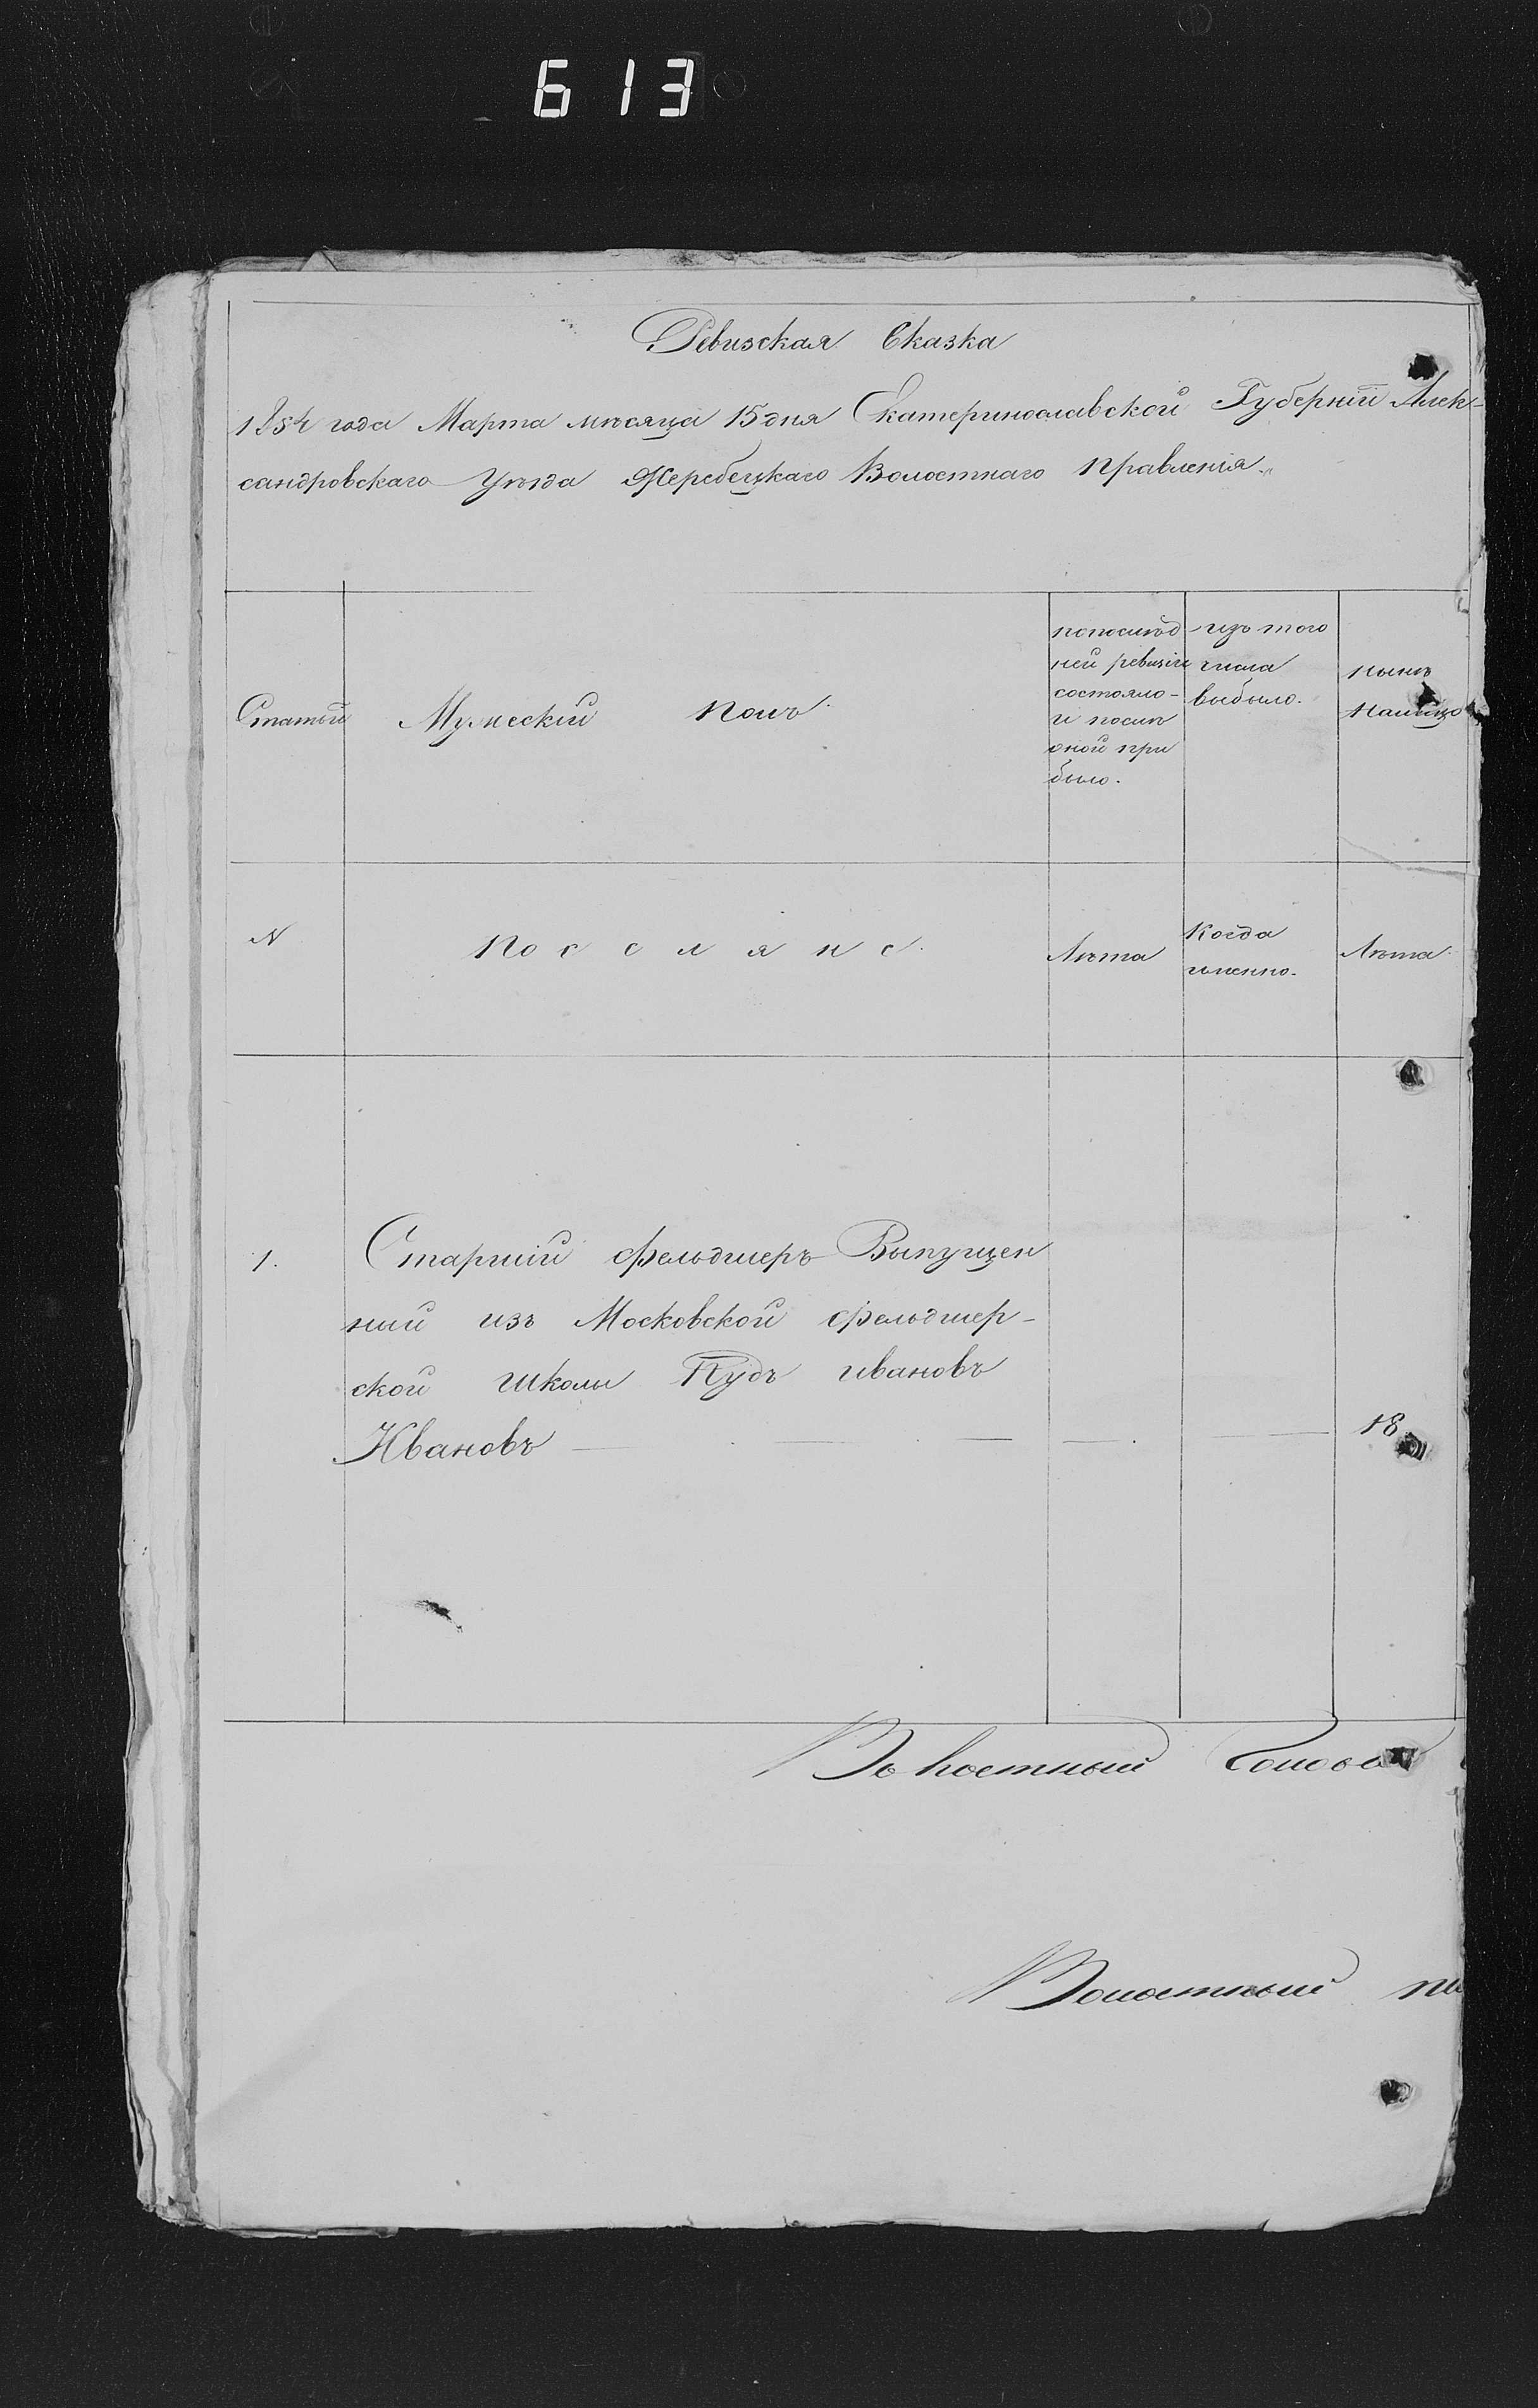 613
Ревизская Сказка
1854 года Марта мѣсяца 15 дня Екатеринославской Губерніи Алек-
сандровскаго Уѣзда Жеребецкаго Волостнаго правленія.
Статьи
Мужескій полъ.
попослѣд
ней ревизіи
состояло-
и послѣ
оной при
было.
изъ того
числа
выбыло.
нынѣ
налицо
N
Поселяне.
Лѣта
Когда
именно.
Лѣта
1.
Старшій фельдшеръ Выпущен
ный изъ Московской фельдшер-
ской Школы Кудъ ивановъ
Ивановъ
18
Волостный Голова
Волостный пи